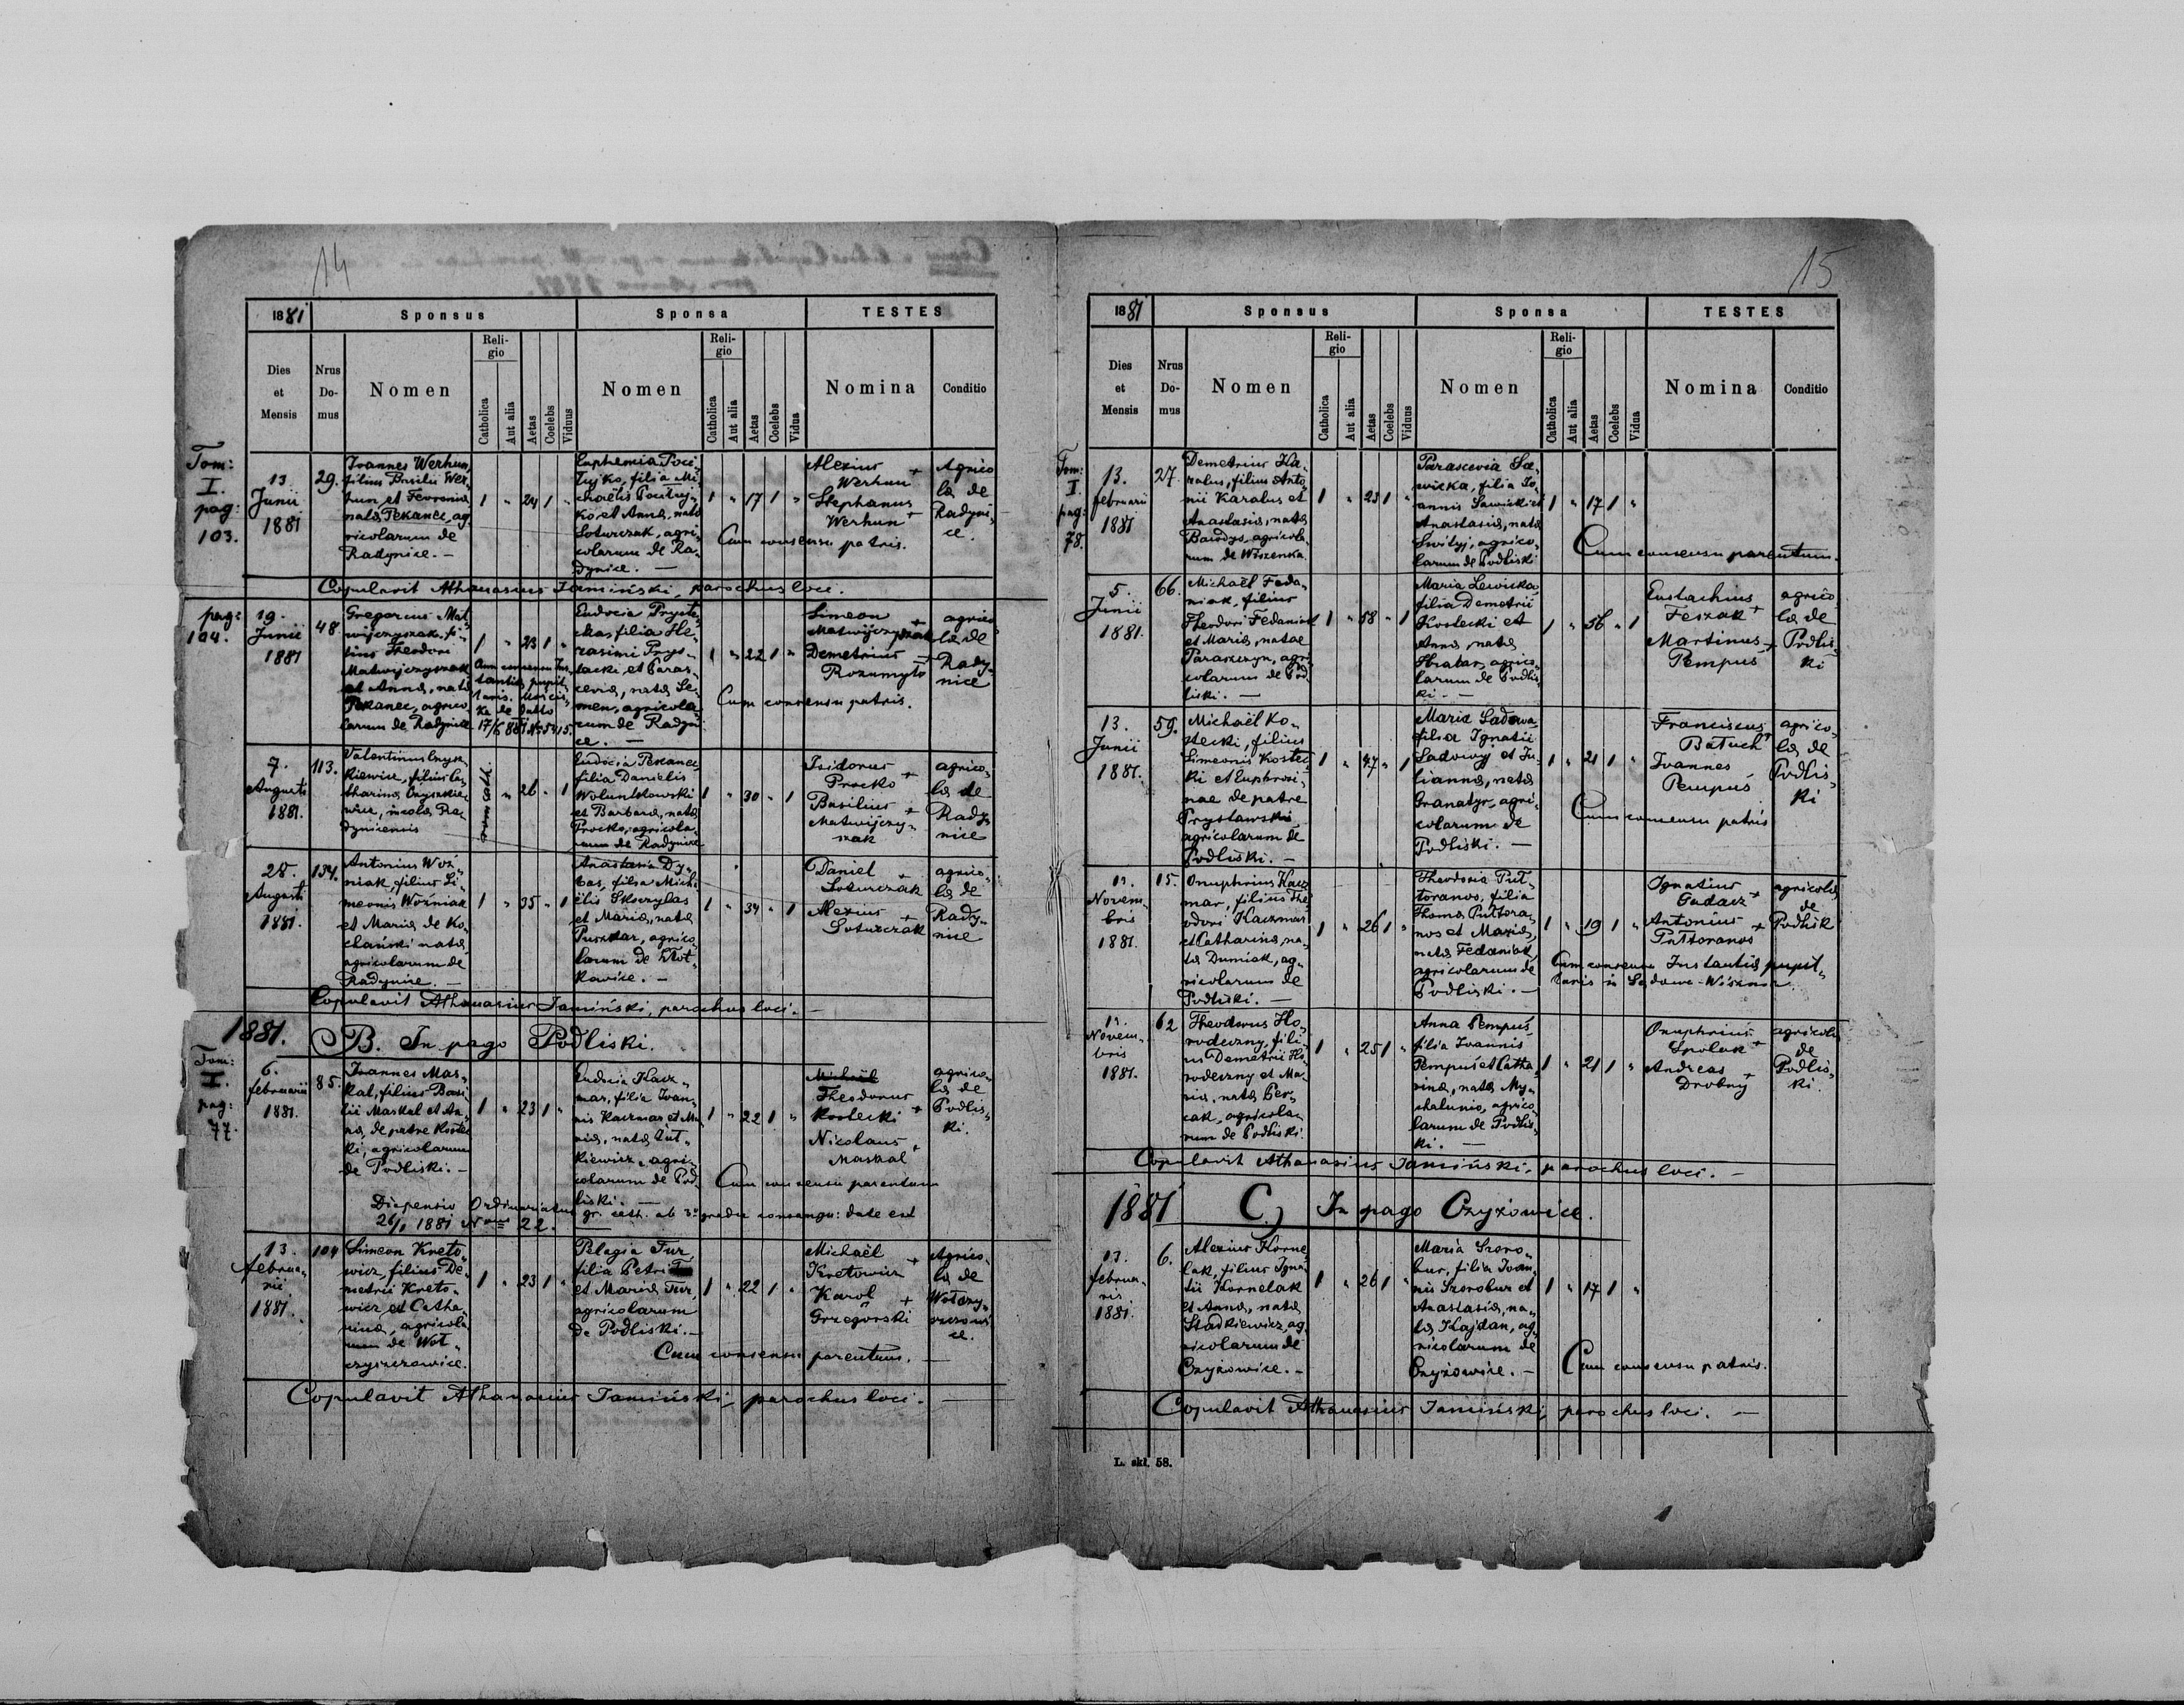 14
1881
Sponsus
Sponsa
TESTES
Dies et Mensis
Nrus Domus
Nomen
Religio
Catholica
Aut alia
Aetas
Coelebs
Viduus
Nomen
Religio
Catholica
Aut alia
Aetas
Coelebs
Vidua
Nomina
Conditio
Tom:
I.
pag:
103.
13.
Junii
1881
29.
Joannes Werhun,
filius Basilii Wer„
hun et Fevronia
nata Pekanec, ag„
ricolarum de
Radynice. —
1 „ 24 1 „
Euphemia
filia Mi„
chaëlis
et Anna, nata
Soturczak, agri„
colarum de Ra„
dynice. —
1 „ 17 1 „
Alexius +
Werhun
Stephanus
Werhun +
Agrico
la de
Radyni„
ce.
Cum consensu patris.
Copulavit Athanasius Jamiński, parochus loci.
pag:
104.
19.
Junii
1881
48
Gregorius Mat„
wijczyszak, fi„
lius Theodori
Matwijczyszak
et Anna, nata
Pekanec, agrico
larum de Radynice
1 „ 23 1 „
Cum consensu Ins„
tantia pupil„
laris.
17/6 881 No 5415.
Eudocia
filia He„
rasimi Prys„
lacki et Paras„
cevia, nata Se„
men, agricola„
rum de Radyni„
ce. —
1 „ 22 1 „
Simeon +
Matwijczyszak
Demetrius +
Rozumyło
agrico
la de
Rady„
nice
Cum consensu patris.
7.
Augusti
1881.
113.
Valentinus
filius Ca„
tharina
incola Ra„
dynicensis
rom. cath. „ 26 „ 1
Eudocia Pekanec
filia Danielis
et Barbara, nata
Procko, agricola„
rum de Radynice
1 „ 30 „ 1
Isidorus +
Procko
Basilius +
Matwijczy„
szak
agrico„
la de
Rady„
nice
28.
Augusti
1881.
134.
Antonius Woź„
niak, filius Si„
meonis Woźniak
et Maria de Ko„
chański nata
agricolarum de
Radynice. —
1 „ 35 „ 1
Anastasia Dy„
bas, filia Micha
ëlis Skoczylas
et Maria, nata
Puszkar, agrico„
larum de
1 „ 34 „ 1
Daniel +
Soturczak
Alexius +
Soturczak
agrico„
la de
Rady„
nice
Copulavit Athanasius Jamiński, parochus loci. —
1881.
B. In pago Podliski.
Tom:
I.
pag:
77.
6.
februarii
1881.
85.
Joannes Mas„
kal, filius Basi„
lii Maskal et An„
na, de patre Kostec
ki, agricolarum
de Podliski. —
1 „ 23 1 „
Eudocia Kacz„
mar, filia Joan„
nis Kaczmar et Ma„
ria, nata
kiewicz, agri„
colarum de Pod„
liski. —
1 „ 22 1 „
Michaël
Theodorus
Kostecki +
Nicolaus +
Maskal
agrico„
la de
Podlis„
ki.
Cum consensu parentum
Dispensio Ordinariatus gr. cath. ab 3o gradu consangu: data est
26/1 1881 No 22. —
13.
februa„
rii
1881.
104
Simeon Kreto„
wicz, filius De„
metrii Kreto„
wicz et Catha„
rina, agricola„
rum de Woł„
czyszczowice.
1 „ 23 1 „
Pelagia Fur,
filia Petri
et Maria Fur,
agricolarum
de Podliski. —
1 „ 22 1 „
Michaël +
Kretowicz
Karol +
Grzegorski
Agrico„
la de
Wołczy„
szczowi
ce.
Cum consensu parentum. —
Copulavit Athanasius Jamiński, parochus loci. —
15
1881
Sponsus
Sponsa
TESTES
Dies et Mensis
Nrus Domus
Nomen
Religio
Catholica
Aut alia
Aetas
Coelebs
Viduus
Nomen
Religio
Catholica
Aut alia
Aetas
Coelebs
Vidua
Nomina
Conditio
Tom:
I.
pag:
78.
13.
februarii
1881
27.
Demetrius Ka„
ralus, filius Anto„
nii Karalus et
Anastasia, nata
Bandys, agricola„
rum de Wiszenka
1 „ 23 1 „
Parascevia Sa„
wicka, filia Jo„
annis Sawicki et
Anastasia, nata
agrico„
larum de Podliski
1 „ 17 1 „
Cum consensu parentum.
5.
Junii
1881.
66.
Michaël Feda„
niak, filius
Theodori Fedaniak
et Maria, natae
agri„
colarum de Pod„
liski. —
1 „ 58 „ 1
Maria Lewicka
filia Demetrii
Kostecki et
Anna, nata
agrico„
larum de Podlis„
ki. —
1 „ 56 „ 1
Eustachius
Feszak +
Martinus +
Pempuś
agrico„
la de
Podlis„
ki
13.
Junii
1881.
59.
Michaël Ko„
stecki, filius
Simeonis Kostec„
ki et Euphrosi„
nae de patre
Prystawski
agricolarum de
Podliski. —
1 „ 47 „ 1
Maria Sadowa
filia Ignatii
Sadowyj et Ju„
lianna, nata
Granatyr, agri„
colarum de
Podliski. —
1 „ 21 1 „
Franciscus
Batuch +
Joannes
Pempuś
agrico„
la de
Podlis„
ki
Cum consensu patris
13.
Novem„
bris
1881.
15.
Onuphrius Kacz
mar, filius The„
odori Kaczmar
et Catharina, na„
ta Dumiak, ag„
ricolarum de
Podliski. —
1 „ 26 1 „
Theodosia Puł„
toranos, filia
Thoma Pułtora„
nos et Maria,
nata Fedaniak,
agricolarum de
Podliski. —
1 „ 19 1 „
Ignatius +
Gudacz
Antonius +
Pułtoranos
agricola
de
Podlisk
Cum consensu Instantia pupil„
laris in Sądowa-Wisznia.
13.
Novem„
bris
1881.
62
Theodorus Ho„
rodeczny, fili„
us Demetrii Ho„
rodeczny et Ma„
ria, nata
agricola„
rum de Podliski.
1 „ 25 1 „
Anna Pempuś
filia Joannis
Pempuś et Catha„
rina, nata My„
chalunio, agrico„
larum de Podlis„
ki. —
1 „ 21 1 „
Onuphrius
Spolak +
Andreas +
Drobny
agricola
de
Podlis„
ki.
Copulavit Athanasius Jamiński, parochus loci. —
1881
C) In pago Czyżowice.
13.
februa„
rii
1881.
6.
Alexius Korne„
lak, filius Igna„
tii Kornelak
et Anna, nata
Stadkiewicz, ag„
ricolarum de
Czyżowice. —
1 „ 26 1 „
Maria Szoro„
bur, filia Joan„
nis Szorobur et
Anastasia, na„
ta Kajdan, ag„
ricolarum de
Czyżowice. —
1 „ 17 1 „
Cum consensu patris.
Copulavit Athanasius Jamiński, parochus loci. —
L. skł. 58.